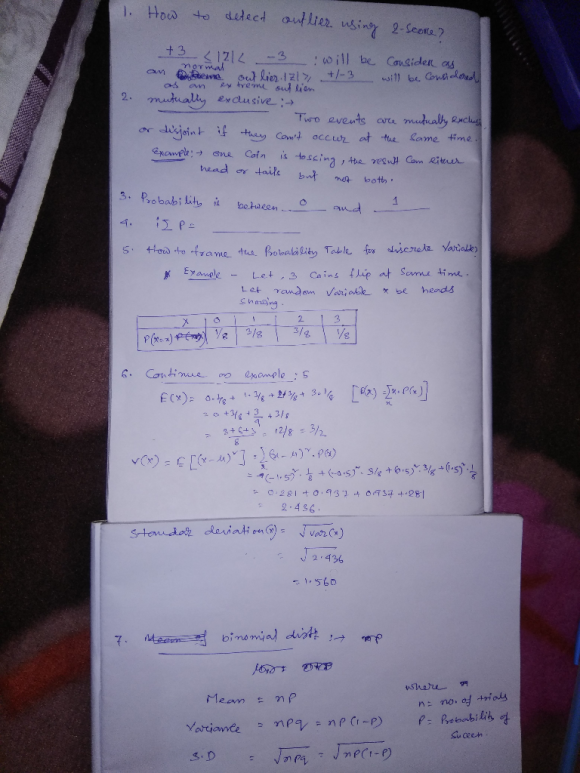 1. How to detect outlier using Z-score?
+3 ≤ |Z| < -3 : will be Consider as
an normal outlier |Z| ≥ +/-3 will be Considered
as an extreme outlier
2. mutually exclusive :→
Two events are mutually exclus
or disjoint if they can't occur at the same time.
Example :→ one Coin is tossing, the result Can either
head or tails but not both.
3. Probability is between 0 and 1
4. iΣ P =
5. How to frame the Probability Table for discrete Variable?
Example - Let, 3 Coins flip at Same time.
Let random Variable x be heads
showing.
X 0 1 2 3
P(X=x) 1/8 3/8 3/8 1/8
6. Continue as example : 5
E(x) = 0.1/8 + 1.3/8 + 2.3/8 + 3.1/8 [E(x) = Σx.P(x)]
= 0 + 3/8 + 3/4 + 3/8
= 3+6+3/8 = 12/8 = 3/2
V(x) = E[(x-μ)²] = Σ(x-μ)².P(x)
= (-1.5)². 1/8 + (-0.5)². 3/8 + (0.5)². 3/8 + (1.5)². 1/8
= 0.281 + 0.937 + 0.937 + .281
= 2.436.
Standar deviation(x) = √var(x)
= √2.436
= 1.560
7. binomial distt :→ np
Mean = nP
Variance = nPq = nP(1-P)
S.D = √nPq = √nP(1-P)
where
n = no. of trials
P = Probability of
Succes.